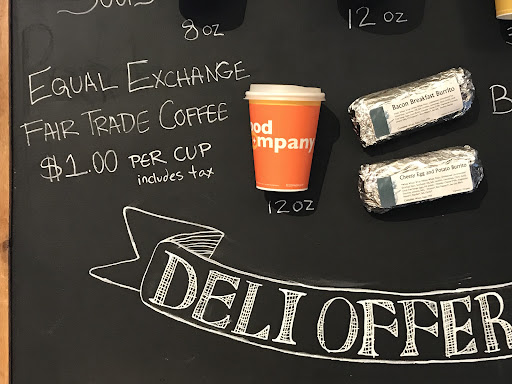 8 oz
12 oz
EQUAL EXCHANGE
FAIR TRADE COFFEE
$1.00 PER CUP
includes tax
ood
mpany
12 oz
Bacon Breakfast Burrito
Cheesy Egg and Potato Burrito
B
DELI OFFER